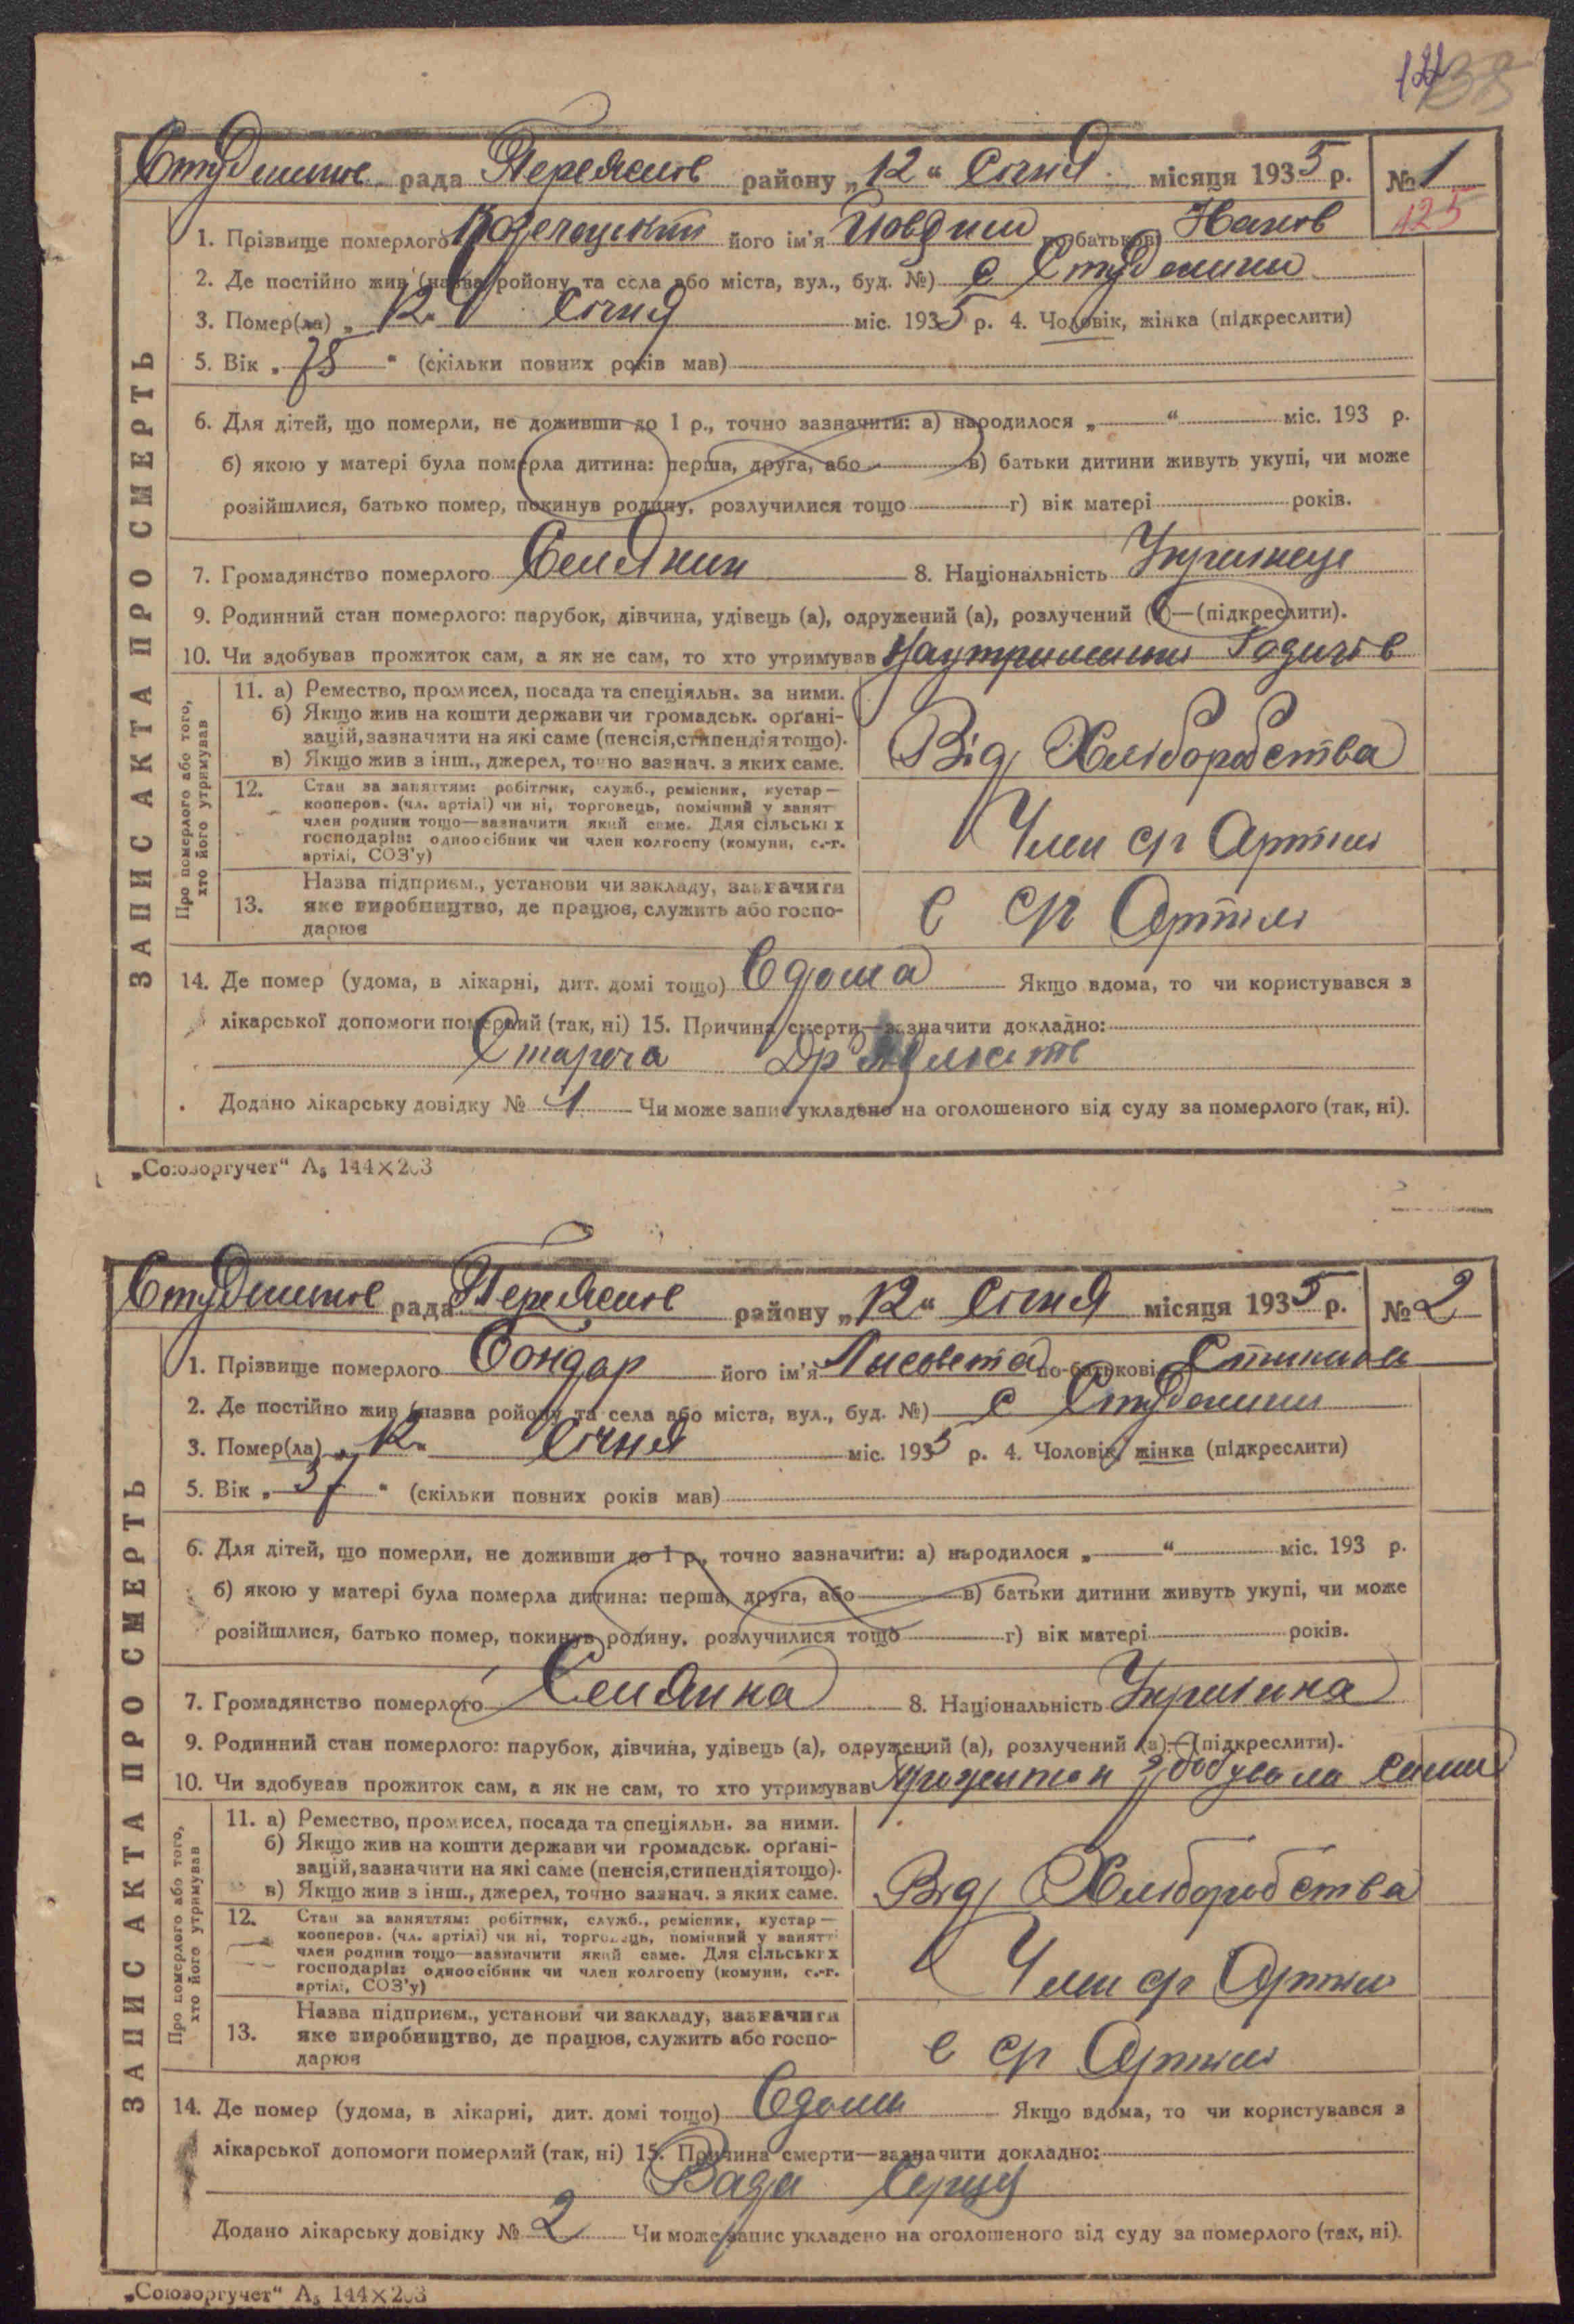 Студеників рада Переяслів району „12“ Січня місяця 1935 р. № 1
125
1. Прізвище померлого його ім'я по-батькові
2. Де постійно жив (назва ройону та села або міста, вул., буд. №) с Студеники
3. Помер(ла) „12“ Січня міс. 1935 р. 4. Чоловік, жінка (підкреслити)
5. Вік „75“ (скільки повних років мав)
6. Для дітей, що померли, не доживши до 1 р., точно зазначити: а) народилося „ “ міс. 193 р.
б) якою у матері була померла дитина: перша, друга, або в) батьки дитини живуть укупі, чи може
розійшлися, батько помер, покинув родину, розлучилися тощо г) вік матері років.
7. Громадянство померлого Селянин 8. Національність Українець
9. Родинний стан померлого: парубок, дівчина, удівець (а), одружений (а), розлучений (а)—(підкреслити).
10. Чи здобував прожиток сам, а як не сам, то хто утримував
ЗАПИС АКТА ПРО СМЕРТЬ
Про померлого або того, хто його утримував
11. а) Ремество, промисел, посада та спеціяльн. за ними.
б) Якщо жив на кошти держави чи громадськ. орґані-
зацій, зазначити на які саме (пенсія, стипендія тощо).
в) Якщо жив з інш., джерел, точно зазнач. з яких саме.
Від Хліборобства
12. Стан за заняттям: робітник, служб., ремісник, кустар—
кооперов. (чл. артілі) чи ні, торговець, помічний у занят
член родини тощо—зазначити який саме. Для сільських
господарів: одноосібник чи член колгоспу (комуни, с.-г.
артілі, СОЗ'у)
Член с/г Артілі
13. Назва підприєм., установи чи закладу, зазначити
яке виробництво, де працює, служить або госпо-
дарює
в с/г Артілі
14. Де помер (удома, в лікарні, дит. домі тощо) Вдома Якщо вдома, то чи користувався з
лікарської допомоги померлий (так, ні) 15. Причина смерти—зазначити докладно:
Стареча
Додано лікарську довідку № 1 Чи може запис укладено на оголошеного від суду за померлого (так, ні).
„Союзоргучет“ А₅ 144×203
Студеників рада Переяслів району „12“ Січня місяця 1935 р. № 2
1. Прізвище померлого Бондар його ім'я Лисовета по-батькові
2. Де постійно жив (назва ройону та села або міста, вул., буд. №) с Студеники
3. Помер(ла) „12“ Січня міс. 1935 р. 4. Чоловік, жінка (підкреслити)
5. Вік „37“ (скільки повних років мав)
6. Для дітей, що померли, не доживши до 1 р., точно зазначити: а) народилося „ “ міс. 193 р.
б) якою у матері була померла дитина: перша, друга, або в) батьки дитини живуть укупі, чи може
розійшлися, батько помер, покинув родину, розлучилися тощо г) вік матері років.
7. Громадянство померлого Селянка 8. Національність
9. Родинний стан померлого: парубок, дівчина, удівець (а), одружений (а), розлучений (а)—(підкреслити).
10. Чи здобував прожиток сам, а як не сам, то хто утримував здобувала сама
ЗАПИС АКТА ПРО СМЕРТЬ
Про померлого або того, хто його утримував
11. а) Ремество, промисел, посада та спеціяльн. за ними.
б) Якщо жив на кошти держави чи громадськ. орґані-
зацій, зазначити на які саме (пенсія, стипендія тощо).
в) Якщо жив з інш., джерел, точно зазнач. з яких саме.
Від Хліборобства
12. Стан за заняттям: робітник, служб., ремісник, кустар—
кооперов. (чл. артілі) чи ні, торговець, помічний у занятті
член родини тощо—зазначити який саме. Для сільських
господарів: одноосібник чи член колгоспу (комуни, с.-г.
артілі, СОЗ'у)
Член с/г Артілі
13. Назва підприєм., установи чи закладу, зазначити
яке виробництво, де працює, служить або госпо-
дарює
в с/г Артілі
14. Де помер (удома, в лікарні, дит. домі тощо) Вдома Якщо вдома, то чи користувався з
лікарської допомоги померлий (так, ні) 15. Причина смерти—зазначити докладно:
Вада Серця
Додано лікарську довідку № 2 Чи може запис укладено на оголошеного від суду за померлого (так, ні).
„Союзоргучет“ А₅ 144×203